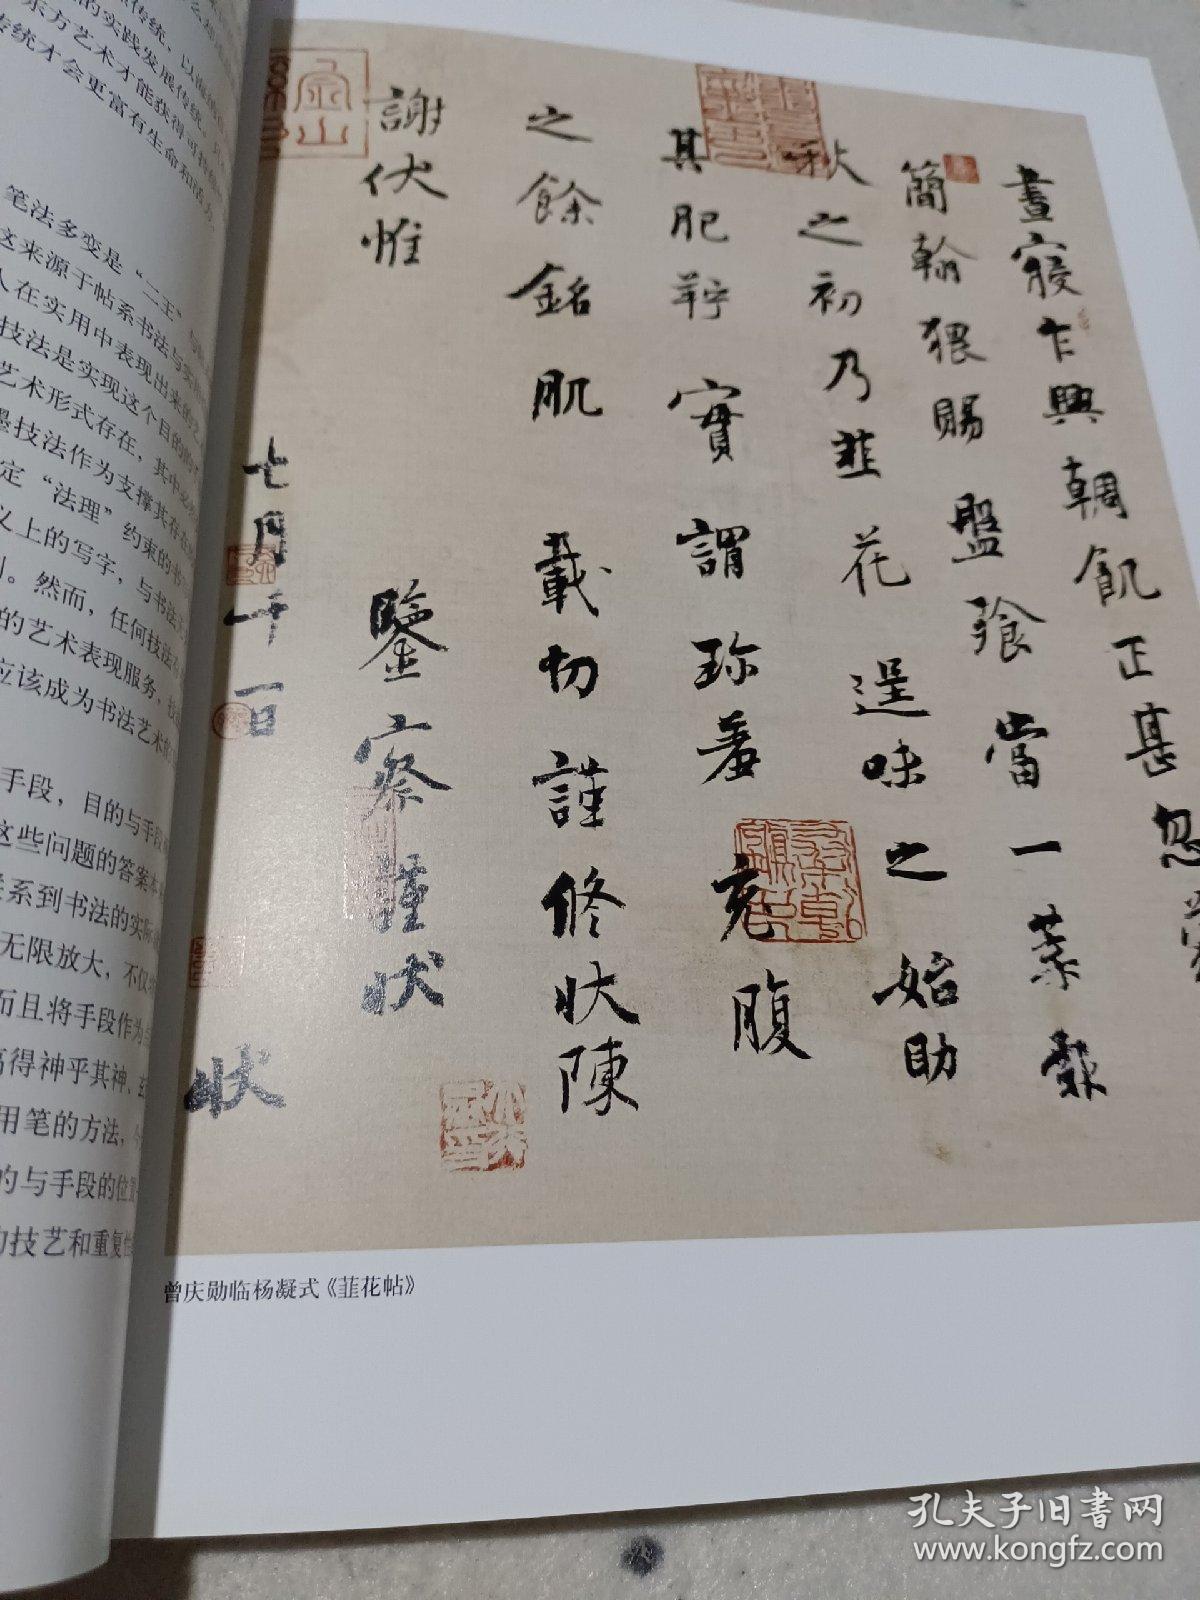 晝寢乍興朝飢正甚忽
簡翰猥賜盤飱當一葉報
秋之初乃韭花逞味之始助
其肥羜實謂珍羞充腹
之餘銘肌載切謹修狀陳
謝伏惟
鑒察謹狀
七月十一日
狀
曾庆勋临杨凝式《韮花帖》
传统，以
的实践发展传统。
东方艺术才能获得可持
传统才会更富有生命和活力
笔法多变是“二王”
这来源于帖系书法与
人在实用中表现出来的
技法是实现这个目的的
艺术形式存在，其中必
墨技法作为支撑其存在
定“法理”约束的书
义上的写字，与书法
。然而，任何技法
的艺术表现服务，
应该成为书法艺术的
手段，目的与手段
这些问题的答案本
系到书法的实际
无限放大，不仅
而且将手段作为
高得神乎其神，
用笔的方法，
的与手段的位置
的技艺和重复
孔夫子旧书网
www.kongfz.com